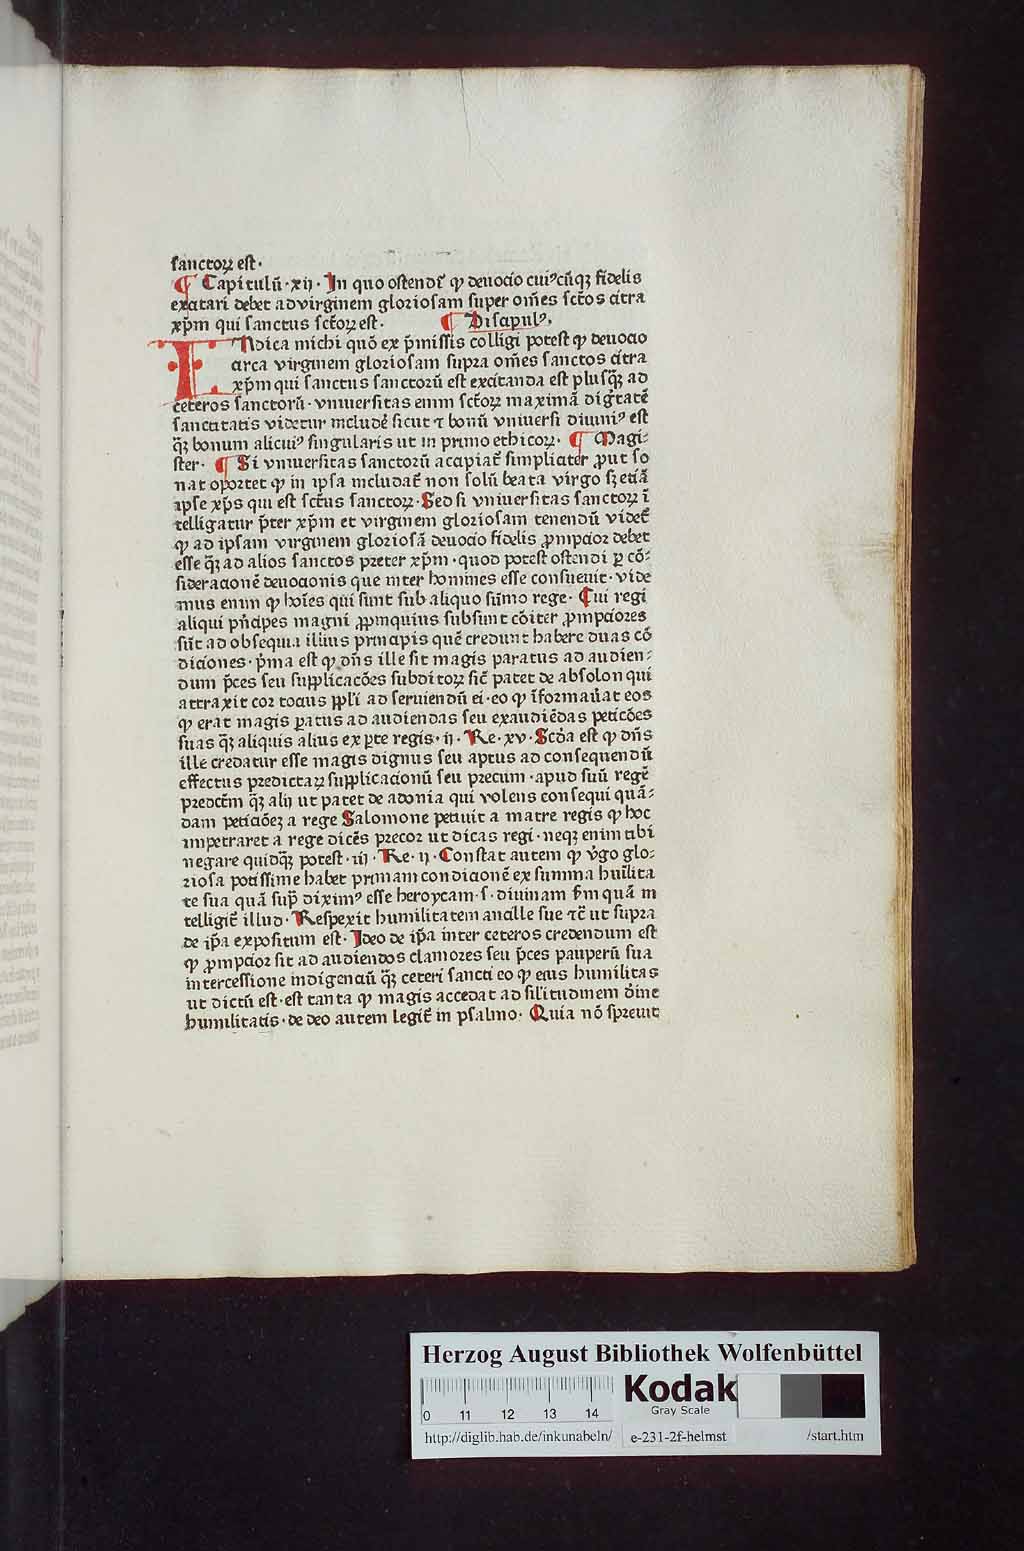 sanctoꝝ est·
¶ Capitulū·xij· In quo ostendiᷣ ꝙ deuocio cuiꝰcūqꝫ fidelis
excitari debet ad virginem gloriosam super om̄es sct̄os citra
xp̄m qui sanctus sct̄oꝝ est. ¶ Discipulꝰ.
INdica michi quō ex p̄missis colligi potest ꝙ deuocio
circa virginem gloriosam supra om̄es sanctos citra
xp̄m qui sanctus sanctorū est excitanda est plusqꝫ̄ ad
ceteros sanctorū· vniuersitas enim sct̄oꝝ maximā dig̾tatē
sanctitatis videtur include᷑ sicut ⁊ bonū vniuersi diuiniꝰ est
qꝫ̄ bonum alicuiꝰ singularis ut in primo ethicoꝝ· ¶ Magi⸗
ster· ¶ Si vniuersitas sanctorū accipiat᷑ simpliciter ꝓut so
nat oportet ꝙ in ipsa includat᷑ non solū beata virgo sꝫ etiā
ipse xp̄s qui est sct̄us sanctoꝝ· Sed si vniuersitas sanctoꝝ ī
telligatur p̄ter xp̄m et virginem gloriosam tenendū videt᷑
ꝙ ad ipsam virginem gloriosā deuocio fidelis ꝓmpcior debet
esse qꝫ̄ ad alios sanctos preter xp̄m·quod potest ostendi ꝑ cō⸗
sideracionē deuocionis que inter homines esse consueuit·vide
mus enim ꝙ hoīes qui sunt sub aliquo sūmo rege· Cui regi
aliqui pn̄cipes magni ꝓpinquius subsunt cōiter ꝓmpciores
sūt ad obsequia illius principis quē credunt habere duas cō
diciones·p̄ma est ꝙ dn̄s ille sit magis paratus ad audien⸗
dum p̄ces seu supplicacōes subditoꝝ sic̄ patet de absolon qui
attraxit cor tocius ppl̄i ad seruiendū ei·eo ꝙ īformau̾at eos
ꝙ erat magis ꝑatus ad audiendas seu exaudiēdas peticōes
suas qꝫ̄ aliquis alius ex ꝑte regis·ij·Re·xv·Scd̄a est ꝙ dn̄s
ille credatur esse magis dignus seu aptus ad consequendū
effectus predictaꝝ supplicacionū seu precum·apud suū regē
predctm̄ qꝫ̄ alij ut patet de adonia qui volens consequi quā⸗
dam peticiōeꝫ a rege Salomone petiuit a matre regis ꝙ hoc
impetraret a rege dicēs precor ut dicas regi·neqꝫ enim tibi
negare quidqꝫ̄ potest·iij·Re·ij·Constat autem ꝙ v̾go glo⸗
riosa potissime habet primam condicionē ex summa huīlita
te sua quā sup̄ diximꝰ esse heroycam·s·diuinam sm̄ quā in
telligit᷑ illud·Respexit humilitatem ancille sue ⁊c̄ ut supra
de ip̄a expositum est· Ideo de ip̄a inter ceteros credendum est
ꝙ ꝓmpcior sit ad audiendos clamores seu p̄ces pauperū sua
intercessione indigenciū qꝫ̄ ceteri sancti eo ꝙ eius humilitas
ut dictū est·est tanta ꝙ magis accedat ad sil̄itudinem diīne
humilitatis·de deo autem legit᷑ in psalmo· Quia nō spreuit
Herzog August Bibliothek Wolfenbüttel
0 11 12 13 14
Kodak
Gray Scale
http://diglib.hab.de/inkunabeln/ e-231-2f-helmst /start.htm